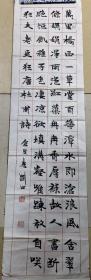 萬里橋西一草堂百花潭水即滄浪風含翠
篠娟娟淨雨裛紅蕖冉冉香厚祿故人書斷
絕恒飢稚子色凄涼欲填溝壑唯疎放自笑
狂夫老更狂杜甫詩